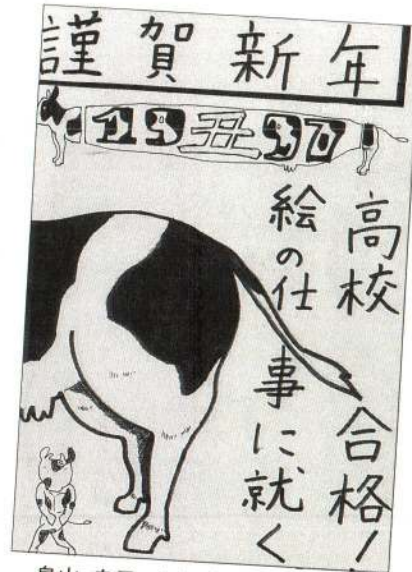 謹賀新年
19丑97
高校合格!
絵の仕事に就く